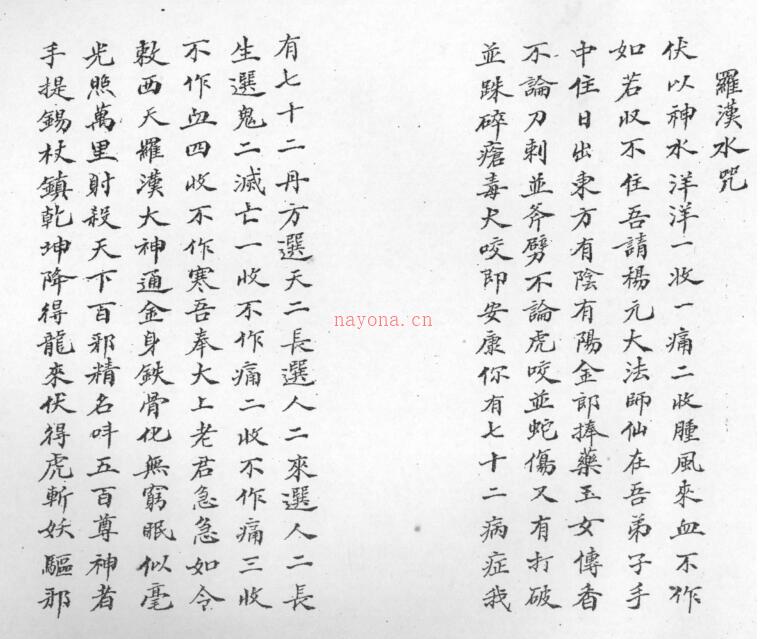 羅漢水咒
伏以神水洋洋一收一痛二收腫風來血不作
如若收不住吾請楊元大法師仙在吾弟子手
中住日出東方有陰有陽金郎捧藥玉女傳香
不論刀刺並斧劈不論虎咬並蛇傷又有打破
並跌碎瘡毒犬咬即安康你有七十二病症我
有七十二丹方選天二長選人二來選人二長
生選鬼二滅亡一收不作痛二收不作痛三收
不作血四收不作寒吾奉大上老君急急如令
敕西天羅漢大神通金身鉄骨化無窮眠似毫
光照萬里射殺天下百邪精名呌五百尊神者
手提錫杖鎮乾坤降得龍來伏得虎斬妖驅邪
nayona.cn